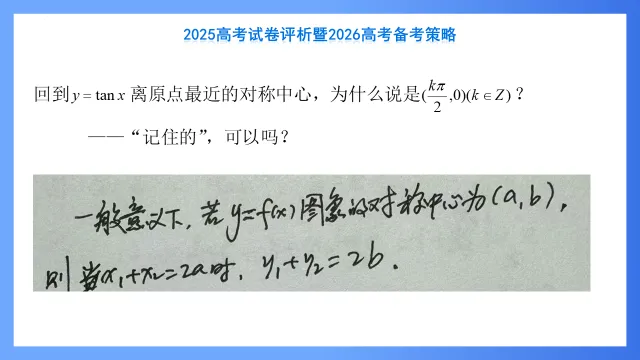 2025高考试卷评析暨2026高考备考策略
回到y = tan x 离原点最近的对称中心，为什么说是(kπ/2,0)(k∈Z)？
——“记住的”，可以吗？
一般意义下，若y=f(x)图象的对称中心为(a,b)，
则当x₁+x₂=2a时，y₁+y₂=2b．